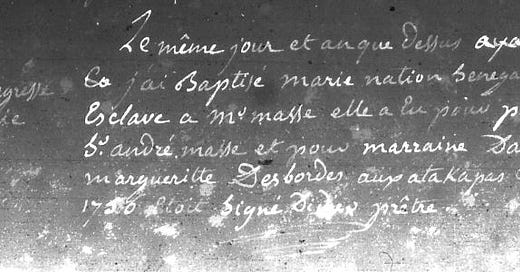 Le même jour et an que dessus
j'ai Baptisé marie nation Senega
Esclave a Mr masse elle a Eu pour p
Sr. andré masse et pour marraine Da
margueritte Desbordes aux atakapas
Etoit Signé Didier prêtre